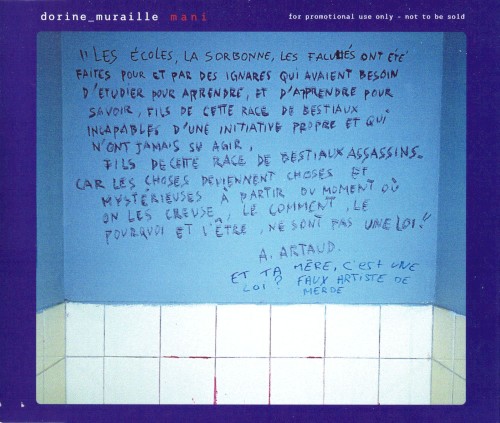 dorine_muraille mani
for promotional use only - not to be sold
"LES ÉCOLES, LA SORBONNE, LES FACULTÉS ONT ÉTÉ
FAITES POUR ET PAR DES IGNARES QUI AVAIENT BESOIN
D'ETUDIER POUR APRENDRE, ET D'APPRENDRE POUR
SAVOIR, FILS DE CETTE RACE DE BESTIAUX
INCAPABLES D'UNE INITIATIVE PROPRE ET QUI
N'ONT JAMAIS SU AGIR,
FILS DE CETTE RACE DE BESTIAUX ASSASSINS.
CAR LES CHOSES DEVIENNENT CHOSES ET
MYSTÉRIEUSES À PARTIR DU MOMENT OÙ
ON LES CREUSE, LE COMMENT, LE
POURQUOI ET L'ÊTRE, NE SONT PAS UNE LOI."
A. ARTAUD.
ET TA MÈRE, C'EST UNE
LOI? FAUX ARTISTE DE
MERDE